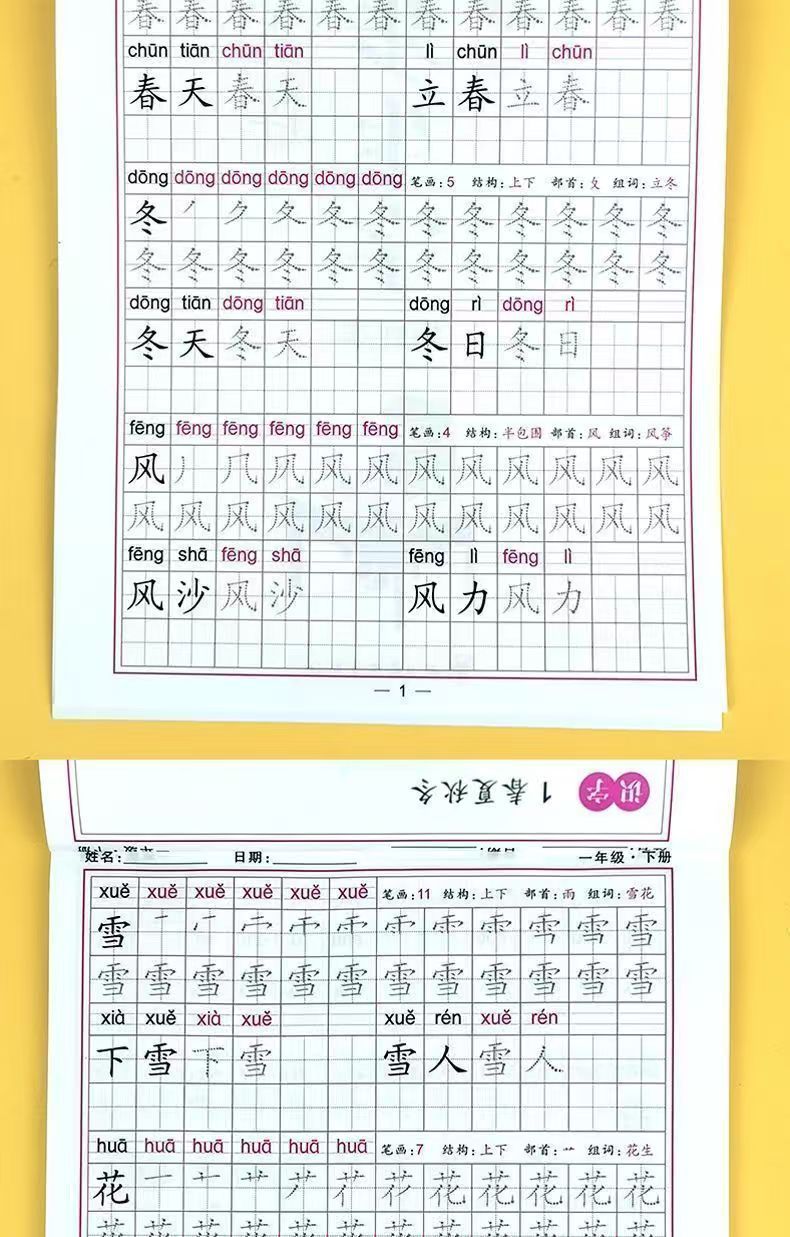 春 春 春 春 春 春 春 春 春 春 春 春
chūn tiān chūn tiān lì chūn lì chūn
春 天 春 天 立 春 立 春
dōng dōng dōng dōng dōng dōng 笔画:5 结构:上下 部首:夂 组词:立冬
冬 丿 ク 夂 冬 冬 冬 冬 冬 冬 冬 冬
冬 冬 冬 冬 冬 冬 冬 冬 冬 冬 冬 冬
dōng tiān dōng tiān dōng rì dōng rì
冬 天 冬 天 冬 日 冬 日
fēng fēng fēng fēng fēng fēng 笔画:4 结构:半包围 部首:风 组词:风筝
风 丿 几 风 风 风 风 风 风 风 风 风
风 风 风 风 风 风 风 风 风 风 风 风
fēng shā fēng shā fēng lì fēng lì
风 沙 风 沙 风 力 风 力
— 1 —
识字 1 春夏秋冬
姓名: 日期: 一年级·下册
xuě xuě xuě xuě xuě xuě 笔画:11 结构:上下 部首:雨 组词:雪花
雪 雪 雪 雪
雪 雪 雪 雪 雪 雪 雪 雪 雪 雪 雪 雪
xià xuě xià xuě xuě rén xuě rén
下 雪 下 雪 雪 人 雪 人
huā huā huā huā huā huā 笔画:7 结构:上下 部首:艹 组词:花生
花 一 十 艹 花 花 花 花 花
花 花 花 花 花 花 花 花 花 花 花 花